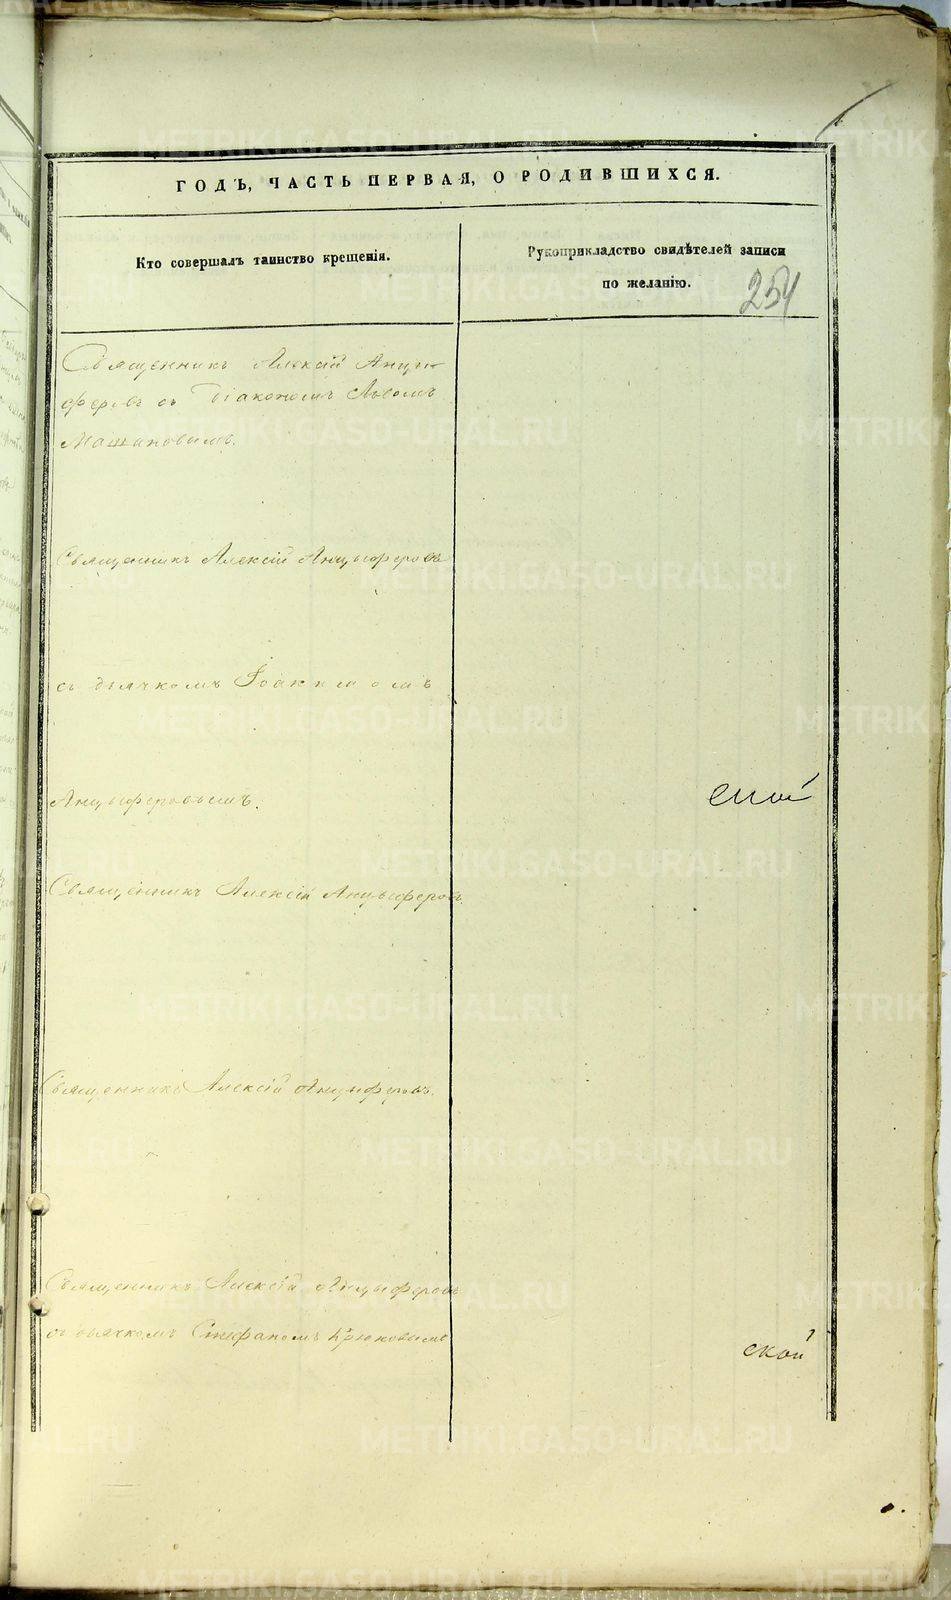 ГОДЪ, ЧАСТЬ ПЕРВАЯ, О РОДИВШИХСЯ.
Кто совершалъ таинство крещенія.
Рукоприкладство свидѣтелей записи
по желанію.
254
Священникъ Алексій Анцы-
феровъ съ Діакономъ Львомъ
Машановымъ.
Священникъ Алексій Анцыферовъ
съ дьячкомъ Іоакимомъ
Анцыферовымъ.
Священникъ Алексій Анцыферовъ
Священникъ Алексій Анцыферовъ.
Священникъ Алексій Анцыферовъ
съ дьячкомъ Стефаномъ Крюковымъ
ской
METRIKI.GASO-URAL.RU